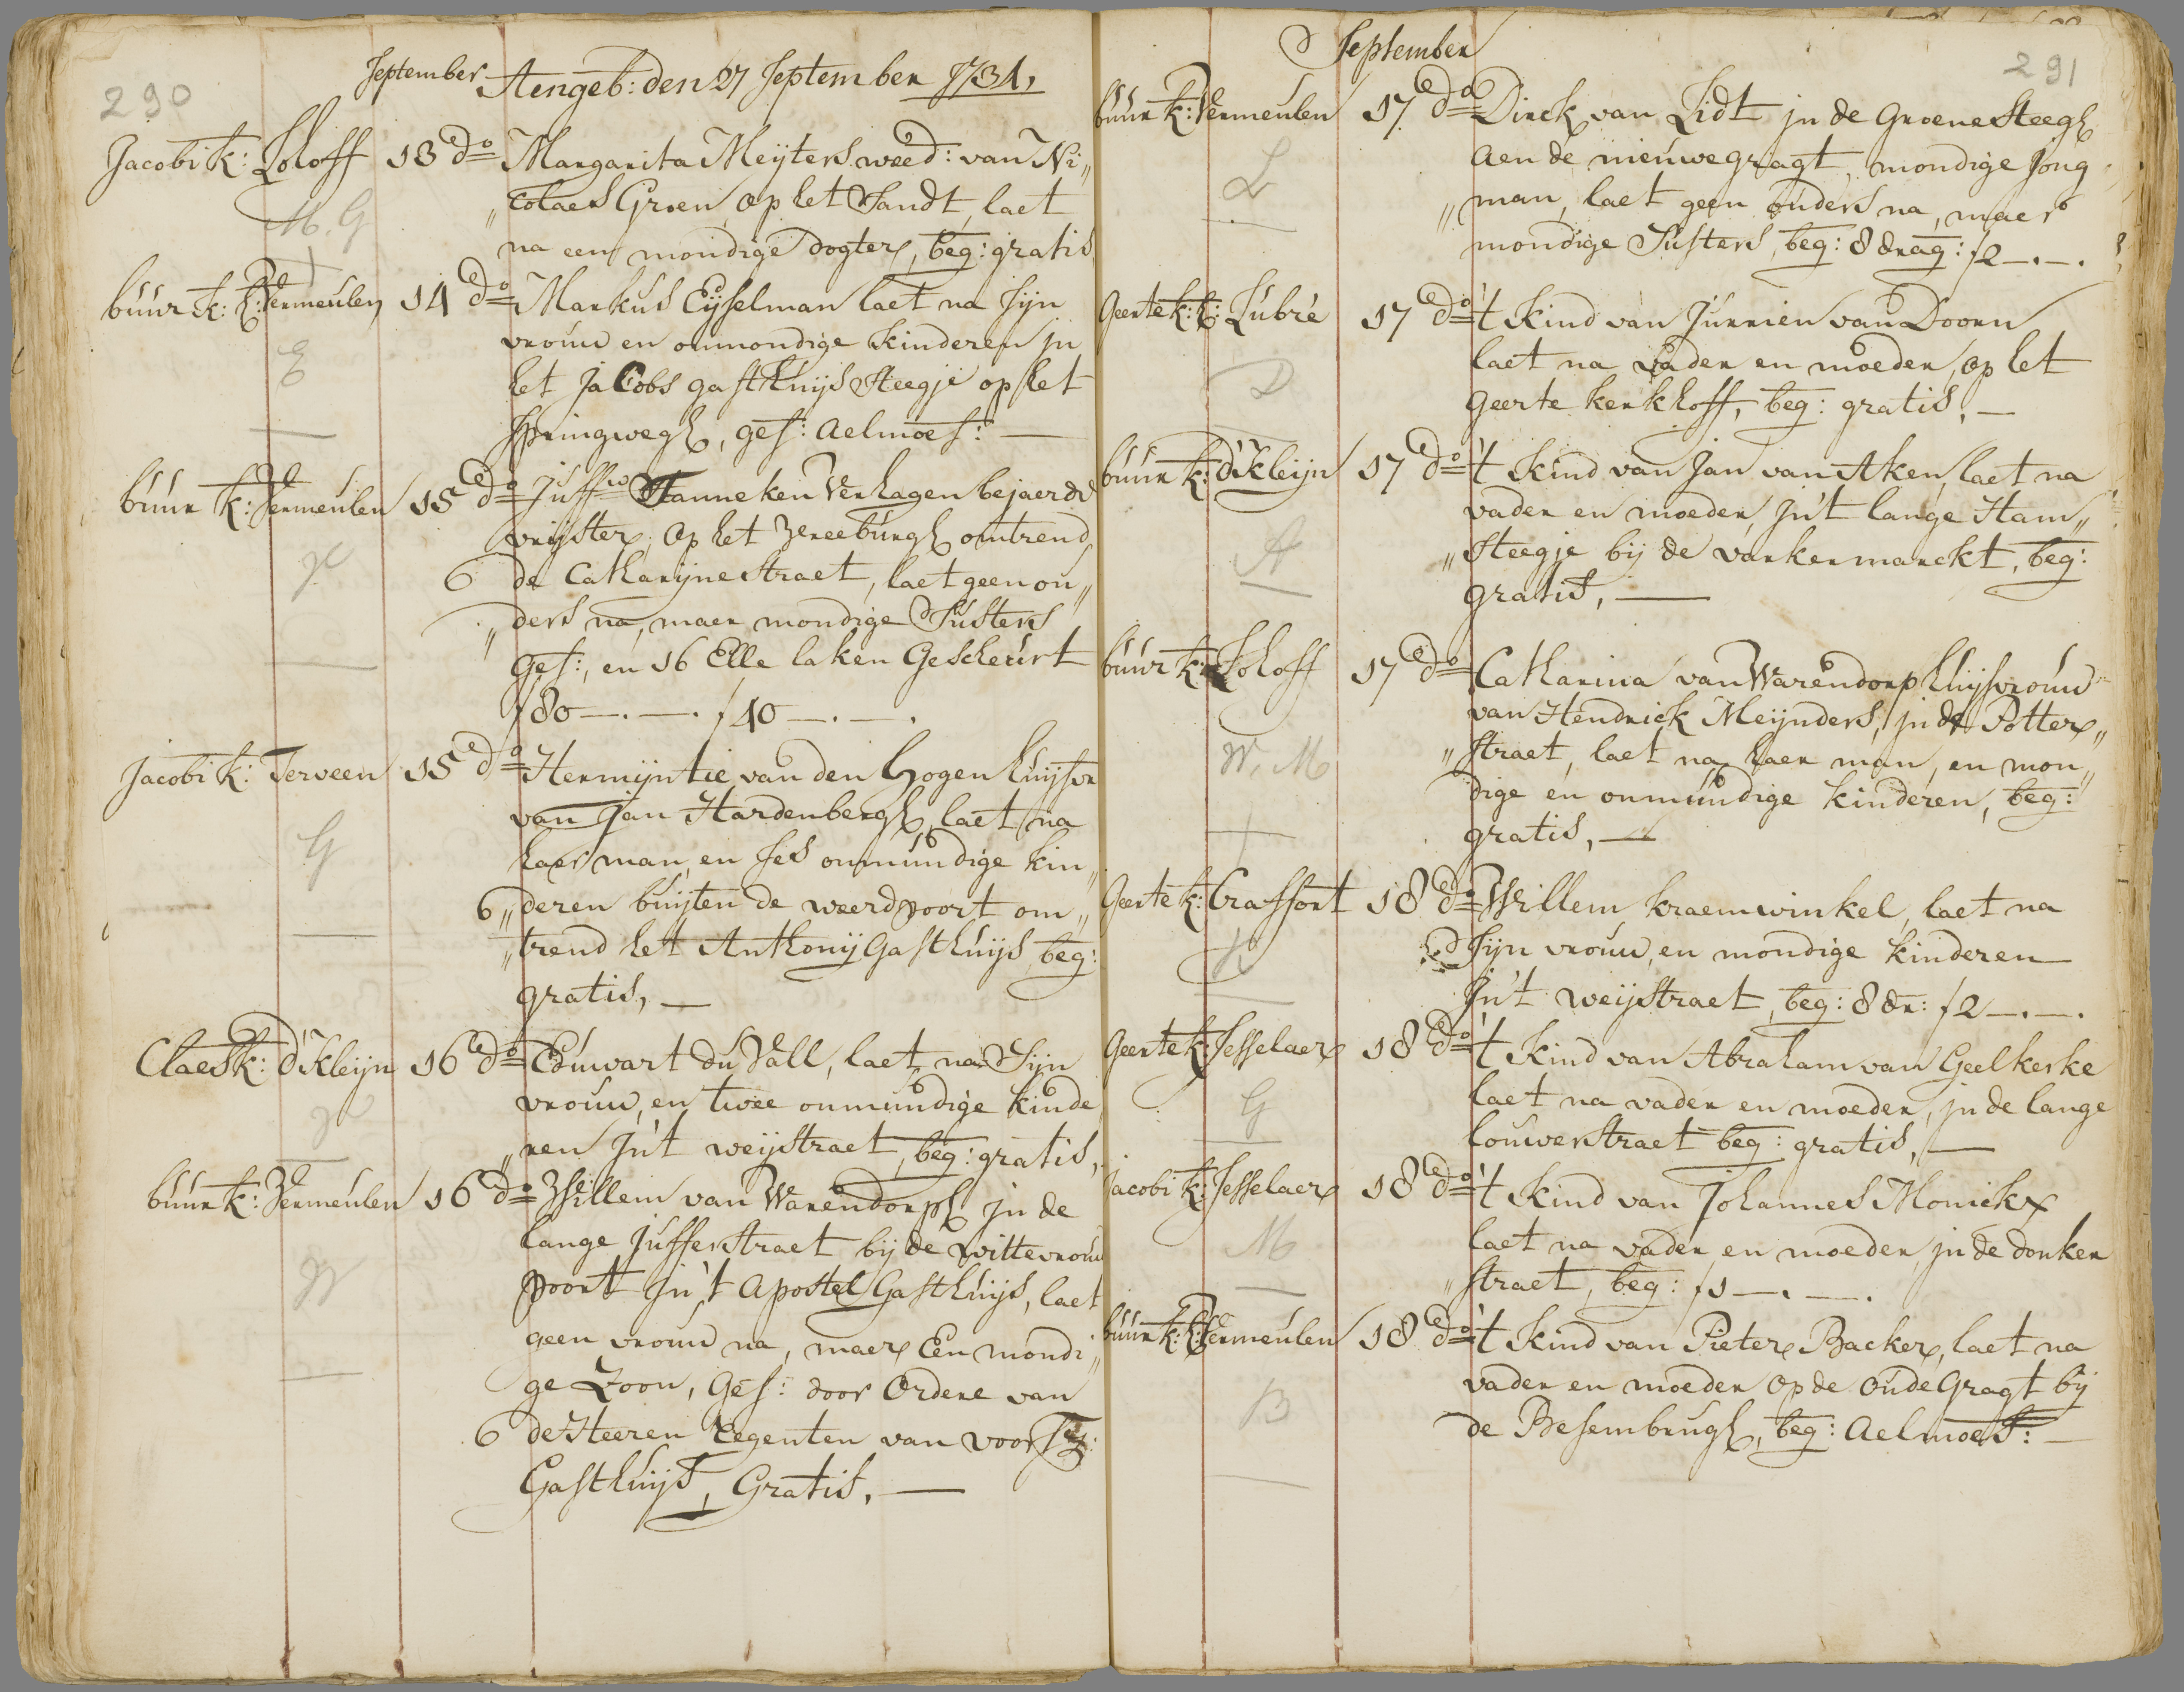 290
September Aengeb: den 27 September 1734,
Jacobi k: Loloff 13 do Margarita Meijters weed: van Ni„
M. G „colaes Groen op het Sandt, laet
na een mondige dogter, beg: gratis
buur k: Vermeulen 14 do Markus Eijselman laet na sijn
vrouw en onmondige kinderen jn
E het Jacobs gasthuijs steegje op het
Springwegh, ges: Aelmoes: —
buur k: Vermeulen 15 do Juffw Hanneken Verhagen bejaerde
vrijster, op het Vreeburgh omtrend
6 de Catharijnestraet, laet geen ou„
„ders na, maer mondige Susters
ges:, en 16 Elle laken Gescheurt
f 80 —.—. f 40 —.—.
Jacobi k: Terveen 15 do Hermijntie van den Hogen huijsvr
van Jan Hardenbergh, laet na
G haer man, en ses onmundige kin„
6 „deren buijten de weerdpoort om„
„trend het Anthonij Gasthuijs, beg:
gratis, —
Claesk: d'Kleijn 16 do Eduwart du Vall, laet na Sijn
vrouw, en twee onmundige kinde
„ren Jn't weijstraet, beg: gratis,
buur k: Vermeulen 16 do Willem van Warendorph jn de
lange Jufferstraet bij de wittevrouw
W poort Jn't Apostel Gasthuijs, laet
geen vrouw na, maer Een mondi„
ge Zoon, Ges: door Ordere van
6 de Heeren Regenten van voorsz:
Gasthuijs, Gratis. —
September
291
buur k: Vermeulen 17 do Dirck van Lidt jn de Groene Steegh
L aen de nieuwegragt, mondige Jong
„man, laet geen ouders na, maer
mondige Susters, beg: 8 drag: f 2 —.—.
Geerte k: Lubre 17 do 't Kind van Jurrien van Doorn
D laet na vader en moeder, op het
Geerte kerkhoff, beg: gratis, —
buur k: d'Kleijn 17 do 't Kind van Jan van Aken, laet na
vader en moeder, Jn't lange Ham„
A „Steegje bij de varkenmarckt, beg:
gratis, —
buur k: Loloff 17 do Catharina van Warendorp huijsvrouw
van Hendrick Meijnders, jn de Potter„
W. M „straet, laet na haer man, en mon„
dige en onmundige kinderen, beg:
gratis, —
Geerte k: Craffort 18 do Willem kraemwinkel, laet na
K Sijn vrouw, en mondige kinderen
Jn't weijstraet, beg: 8 dr: f 2 —.—.
Geerte k: Jesselaer 18 do 't Kind van Abraham van Geelkerke
G laet na vader en moeder, jn de lange
Louwerstraet beg: gratis, —
Jacobi k: Jesselaer 18 do 't Kind van Johannes Monickx
M laet na vader en moeder, jn de donker
„straet, beg: f 1 —.—.
buur k: Vermeulen 18 do 't Kind van Pieter Backer, laet na
vader en moeder op de Oude Gragt bij
B de Besembrugh, beg: Aelmoes: —